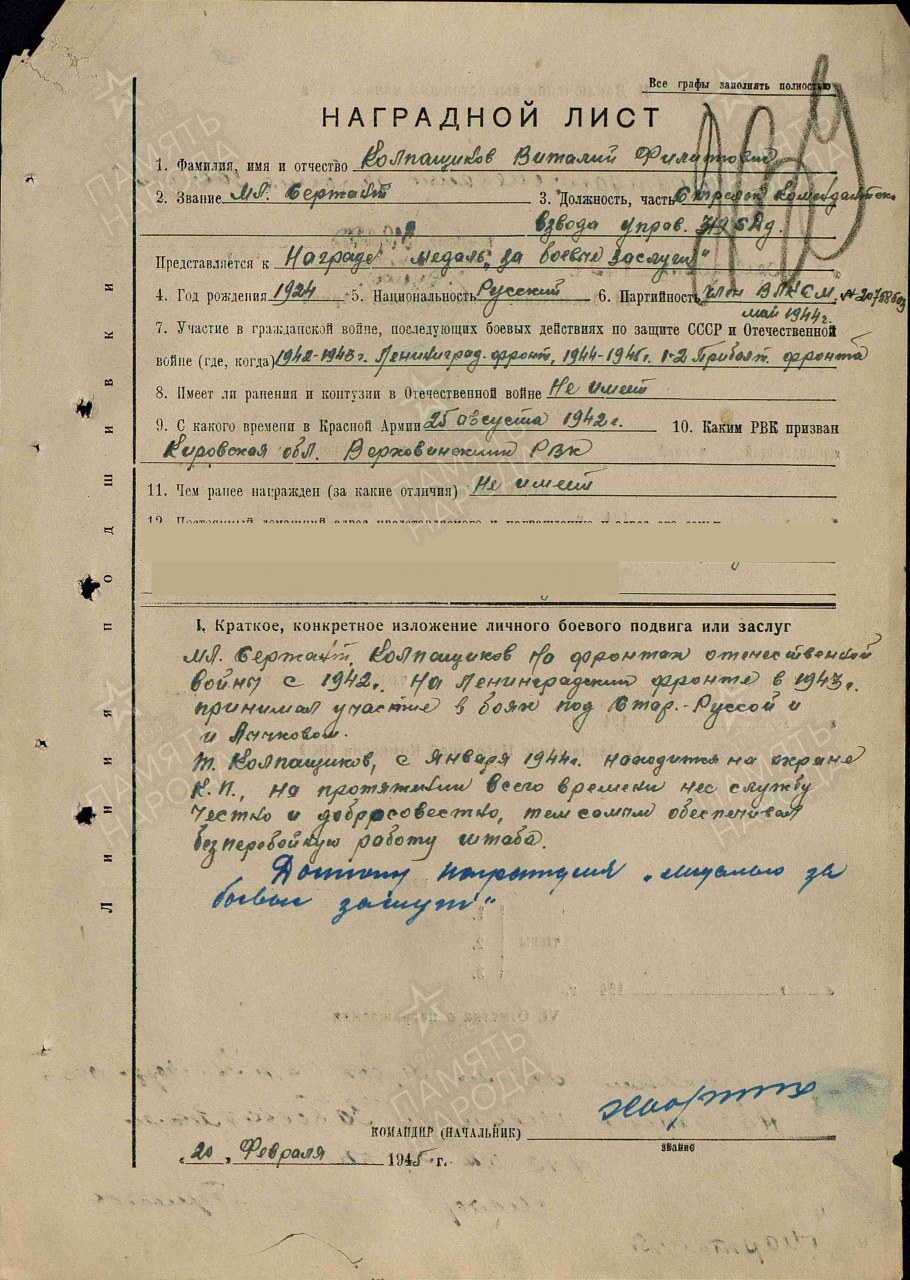 Все графы заполнять полностью
НАГРАДНОЙ ЛИСТ
1. Фамилия, имя и отчество Колпащиков Виталий Филиппович
2. Звание Мл. Сержант 3. Должность, часть Стрелок Комендантск.
взвода управ. СД.
Представляется к Награде медаль „за боевые заслуги"
4. Год рождения 1924 5. Национальность Русский 6. Партийность член ВЛКСМ,
май 1944г.
7. Участие в гражданской войне, последующих боевых действиях по защите СССР и Отечественной
войне (где, когда) 1942-1943г. Ленинград. фронт, 1944-1945г. 1-2 Прибалт. фронта
8. Имеет ли ранения и контузии в Отечественной войне Не имеет
9. С какого времени в Красной Армии 25 августа 1942г. 10. Каким РВК призван
Кировская обл. Верховинским РВК
11. Чем ранее награжден (за какие отличия) Не имеет
I. Краткое, конкретное изложение личного боевого подвига или заслуг
Мл. Сержант, Колпащиков на фронтах отечественной
войны с 1942г. На Ленинградском фронте в 1943г.
принимал участие в боях под Стар.-Руссой и
и Лычковом.
Т. Колпащиков, с Января 1944г. находится на охране
К.П., на протяжении всего времени нес службу
Честно и добросовестно, тем самым обеспечивал
безперебойную работу штаба.
Достоин награждения „медалью за
боевые заслуги"
КОМАНДИР (НАЧАЛЬНИК)
звание
„20„ Февраля 1945 г.
Линия подшивки
ПАМЯТЬ НАРОДА